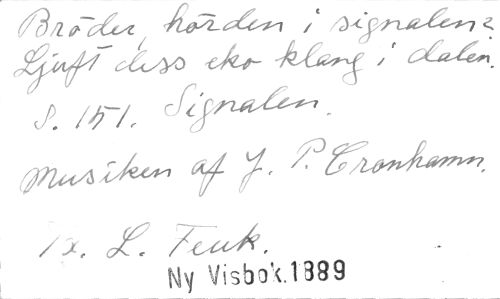 Bröder, hörden i signalen?
Ljuft dess eko klang i dalen.
S. 151. Signalen.
Musiken af J. P. Cronhamn.
L. Feuk.
Ny Visbok.1889